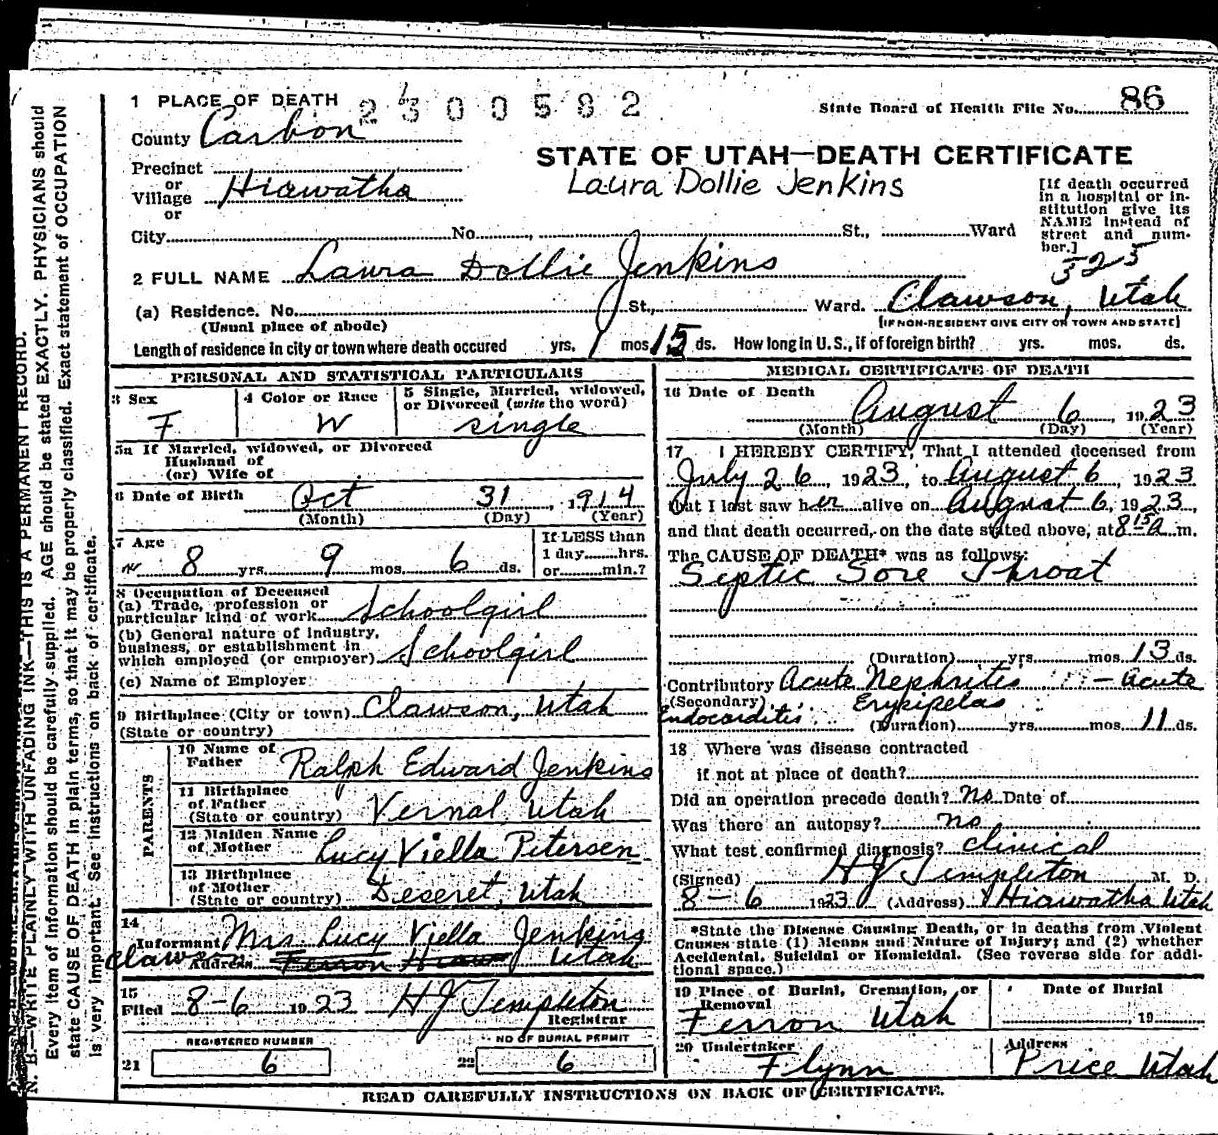 1 PLACE OF DEATH 2300592
State Board of Health File No. 86
County Carbon
STATE OF UTAH—DEATH CERTIFICATE
Precinct
or
Village Hiawatha
or
Laura Dollie Jenkins
[If death occurred in a hospital or institution give its NAME instead of street and number.]
City No. St., Ward
325
2 FULL NAME Laura Dollie Jenkins
(a) Residence. No. St., Ward. Clawson, Utah
(Usual place of abode) [IF NON-RESIDENT GIVE CITY OR TOWN AND STATE]
Length of residence in city or town where death occured yrs. 1 mos 15 ds. How long in U.S., if of foreign birth? yrs. mos. ds.
PERSONAL AND STATISTICAL PARTICULARS
3 Sex F
4 Color or Race W
5 Single, Married, widowed, or Divorced (write the word) single
5a If Married, widowed, or Divorced
Husband of
(or) Wife of
6 Date of Birth Oct 31, 1914
(Month) (Day) (Year)
7 Age 8 yrs. 9 mos. 6 ds.
If LESS than
1 day hrs.
or min.?
8 Occupation of Deceased
(a) Trade, profession or
particular kind of work Schoolgirl
(b) General nature of Industry,
business, or establishment in
which employed (or employer) Schoolgirl
(c) Name of Employer
9 Birthplace (City or town) Clawson, Utah
(State or country)
PARENTS
10 Name of
Father Ralph Edward Jenkins
11 Birthplace
of Father
(State or country) Vernal Utah
12 Maiden Name
of Mother Lucy Viella Petersen
13 Birthplace
of Mother
(State or country) Deseret, Utah
14
Informant Mrs Lucy Viella Jenkins
Clawson Address Ferron Utah
15
Filed 8-6 1923 HJ Templeton
Registrar
REGISTERED NUMBER
21 6
NO OF BURIAL PERMIT
22 6
MEDICAL CERTIFICATE OF DEATH
16 Date of Death
August 6, 1923
(Month) (Day) (Year)
17 I HEREBY CERTIFY, That I attended deceased from
July 26, 1923, to August 6, 1923
that I last saw her alive on August 6, 1923,
and that death occurred, on the date stated above, at 8 15 a m.
The CAUSE OF DEATH* was as follows:
Septic Sore Throat
(Duration) yrs. mos. 13 ds.
Contributory Acute Nephritis - Acute
(Secondary) Erysipelas
Endocarditis (Duration) yrs. mos. 11 ds.
18 Where was disease contracted
if not at place of death?
Did an operation precede death? no Date of
Was there an autopsy? no
What test confirmed diagnosis? Clinical
(Signed) HJ Templeton M. D.
8-6 1923 (Address) Hiawatha Utah
*State the Disease Causing Death, or in deaths from Violent
Causes state (1) Means and Nature of Injury; and (2) whether
Accidental, Suicidal or Homicidal. (See reverse side for additional space.)
19 Place of Burial, Cremation, or
Removal
Ferron Utah
Date of Burial
, 19
20 Undertaker
Flynn
Address
Price Utah
READ CAREFULLY INSTRUCTIONS ON BACK OF CERTIFICATE.
N. B.—WRITE PLAINLY WITH UNFADING INK—THIS IS A PERMANENT RECORD.
Every item of information should be carefully supplied. AGE should be stated EXACTLY. PHYSICIANS should
state CAUSE OF DEATH in plain terms, so that it may be properly classified. Exact statement of OCCUPATION
is very important. See instructions on back of certificate.